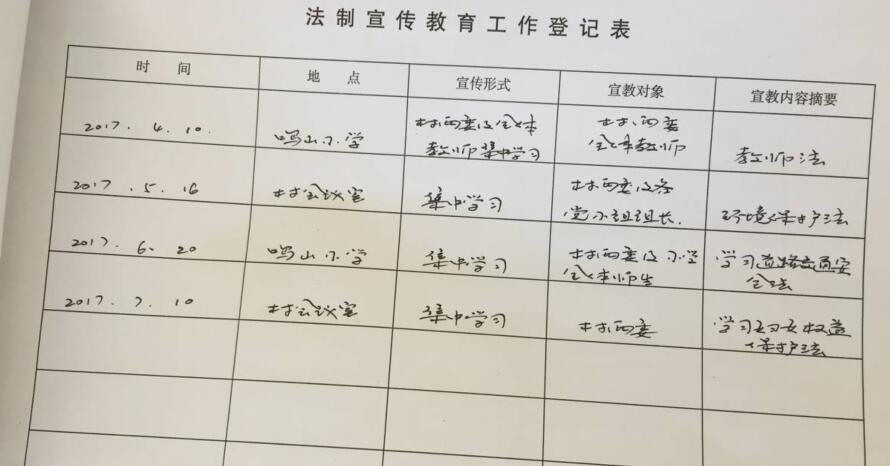 法制宣传教育工作登记表
时 间 地 点 宣传形式 宣教对象 宣教内容摘要
2017.4.10. 鸣山小学 村两委及全体 村、两委
教师集中学习 全体教师 教师法
2017.5.16 村会议室 集中学习 村两委及各
党小组组长. 环境保护法
2017.6.20 鸣山小学 集中学习 村两委及小学 学习道路交通安
全体师生 全法
2017.7.10 村会议室 集中学习 村两委 学习妇女权益
保护法